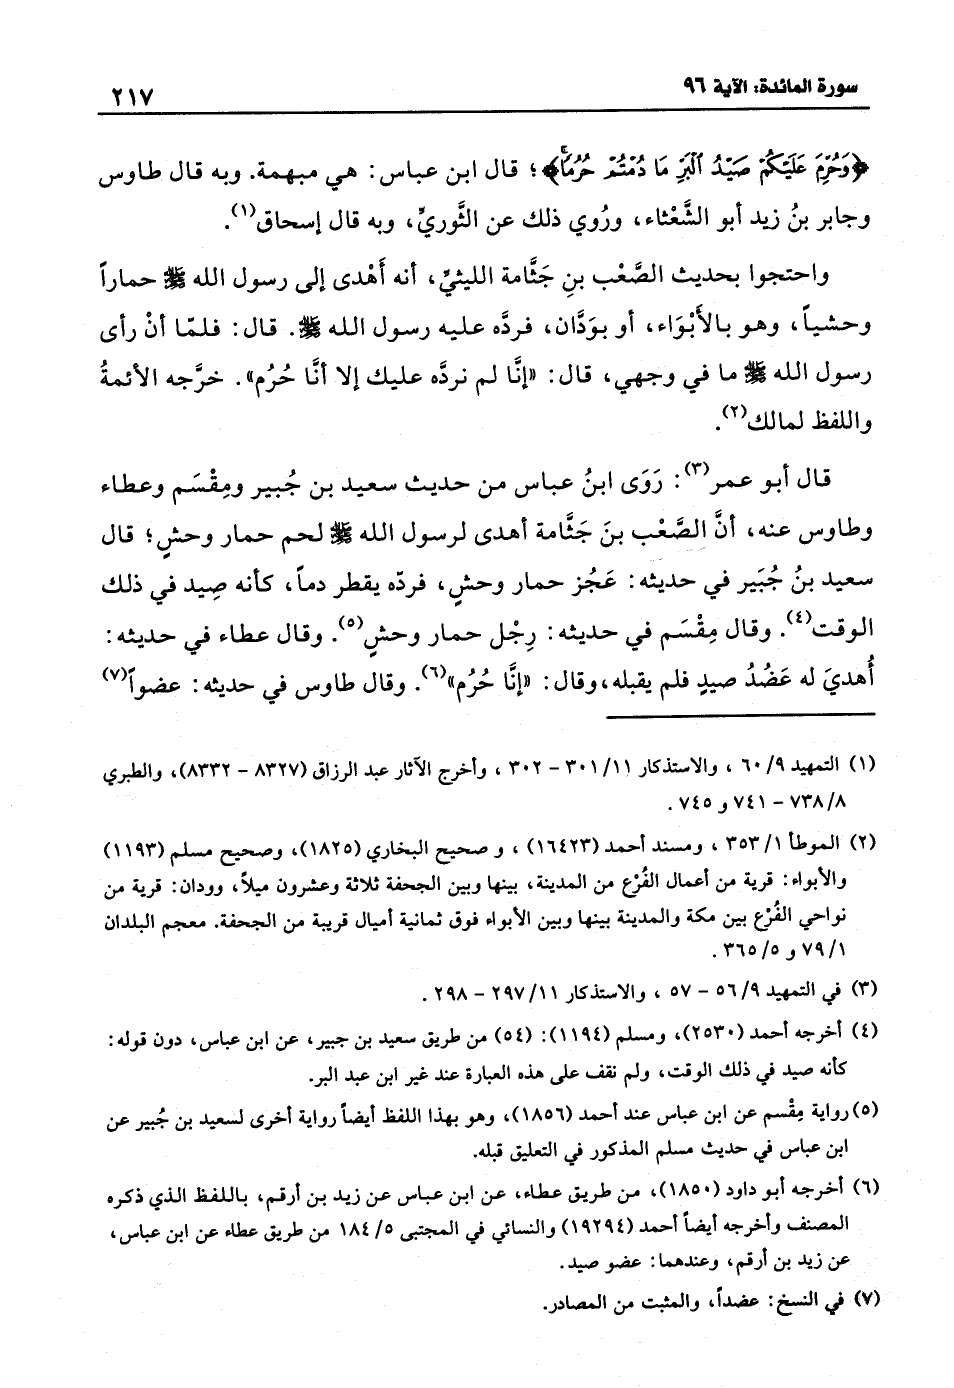 سورة المائدة: الآية ٩٦
٢١٧
﴿وَحُرِّمَ عَلَيْكُمْ صَيْدُ ٱلْبَرِّ مَا دُمْتُمْ حُرُمًا﴾؛ قال ابن عباس: هي مبهمة. وبه قال طاوس
وجابر بنُ زيد أبو الشَّعْثاء، ورُوي ذلك عن الثَّوريِّ، وبه قال إسحاق(١).
واحتجوا بحديث الصَّعْب بنِ جَثَّامة الليثيِّ، أنه أَهْدى إلى رسول الله ﷺ حماراً
وحشياً، وهو بالأَبْوَاء، أو بوَدَّان، فردَّه عليه رسول الله ﷺ. قال: فلمّا أنْ رأى
رسول الله ﷺ ما في وجهي، قال: «إنَّا لم نردَّه عليك إلا أنَّا حُرُم». خرَّجه الأئمةُ
واللفظ لمالك(٢).
قال أبو عمر(٣): رَوَى ابنُ عباس من حديث سعيد بن جُبير ومِقْسَم وعطاء
وطاوس عنه، أنَّ الصَّعْب بنَ جَثَّامة أهدى لرسول الله ﷺ لحم حمار وحشٍ؛ قال
سعيد بنُ جُبَير في حديثه: عَجُز حمار وحشٍ، فردّه يقطر دماً، كأنه صِيد في ذلك
الوقت(٤). وقال مِقْسَم في حديثه: رِجْل حمار وحشٍ(٥). وقال عطاء في حديثه:
أُهديَ له عَضُدُ صيدٍ فلم يقبله، وقال: «إنَّا حُرُم»(٦). وقال طاوس في حديثه: عضواً(٧)
(١) التمهيد ٩/ ٦٠ ، والاستذكار ١١/ ٣٠١ - ٣٠٢ ، وأخرج الآثار عبد الرزاق (٨٣٢٧ - ٨٣٣٢)، والطبري
٨/ ٧٣٨ - ٧٤١ و ٧٤٥ .
(٢) الموطأ ١/ ٣٥٣ ، ومسند أحمد (١٦٤٢٣) ، و صحيح البخاري (١٨٢٥)، وصحيح مسلم (١١٩٣)
والأبواء: قرية من أعمال الفُرْع من المدينة، بينها وبين الجحفة ثلاثة وعشرون ميلاً، وودان: قرية من
نواحي الفُرْع بين مكة والمدينة بينها وبين الأبواء فوق ثمانية أميال قريبة من الجحفة. معجم البلدان
١/ ٧٩ و ٥/ ٣٦٥ .
(٣) في التمهيد ٩/ ٥٦ - ٥٧ ، والاستذكار ١١/ ٢٩٧ - ٢٩٨ .
(٤) أخرجه أحمد (٢٥٣٠)، ومسلم (١١٩٤): (٥٤) من طريق سعيد بن جبير، عن ابن عباس، دون قوله:
كأنه صيد في ذلك الوقت، ولم نقف على هذه العبارة عند غير ابن عبد البر.
(٥) رواية مِقْسم عن ابن عباس عند أحمد (١٨٥٦)، وهو بهذا اللفظ أيضاً رواية أخرى لسعيد بن جُبير عن
ابن عباس في حديث مسلم المذكور في التعليق قبله.
(٦) أخرجه أبو داود (١٨٥٠)، من طريق عطاء، عن ابن عباس عن زيد بن أرقم، باللفظ الذي ذكره
المصنف وأخرجه أيضاً أحمد (١٩٢٩٤) والنسائي في المجتبى ٥/ ١٨٤ من طريق عطاء عن ابن عباس،
عن زيد بن أرقم، وعندهما: عضو صيد.
(٧) في النسخ: عضداً، والمثبت من المصادر.